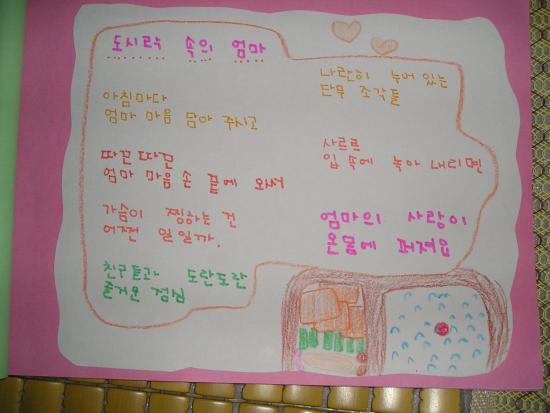 도시락 속의 엄마
아침마다
엄마 마음 담아 주시고
따끈따끈
엄마 마음 손 끝에 와서
가슴이 찡하는 건
어쩐 일일까.
친구들과 도란도란
즐거운 점심
나란히 누어 있는
단무 조각들
사르르
입 속에 녹아 내리면
엄마의 사랑이
온몸에 퍼져요